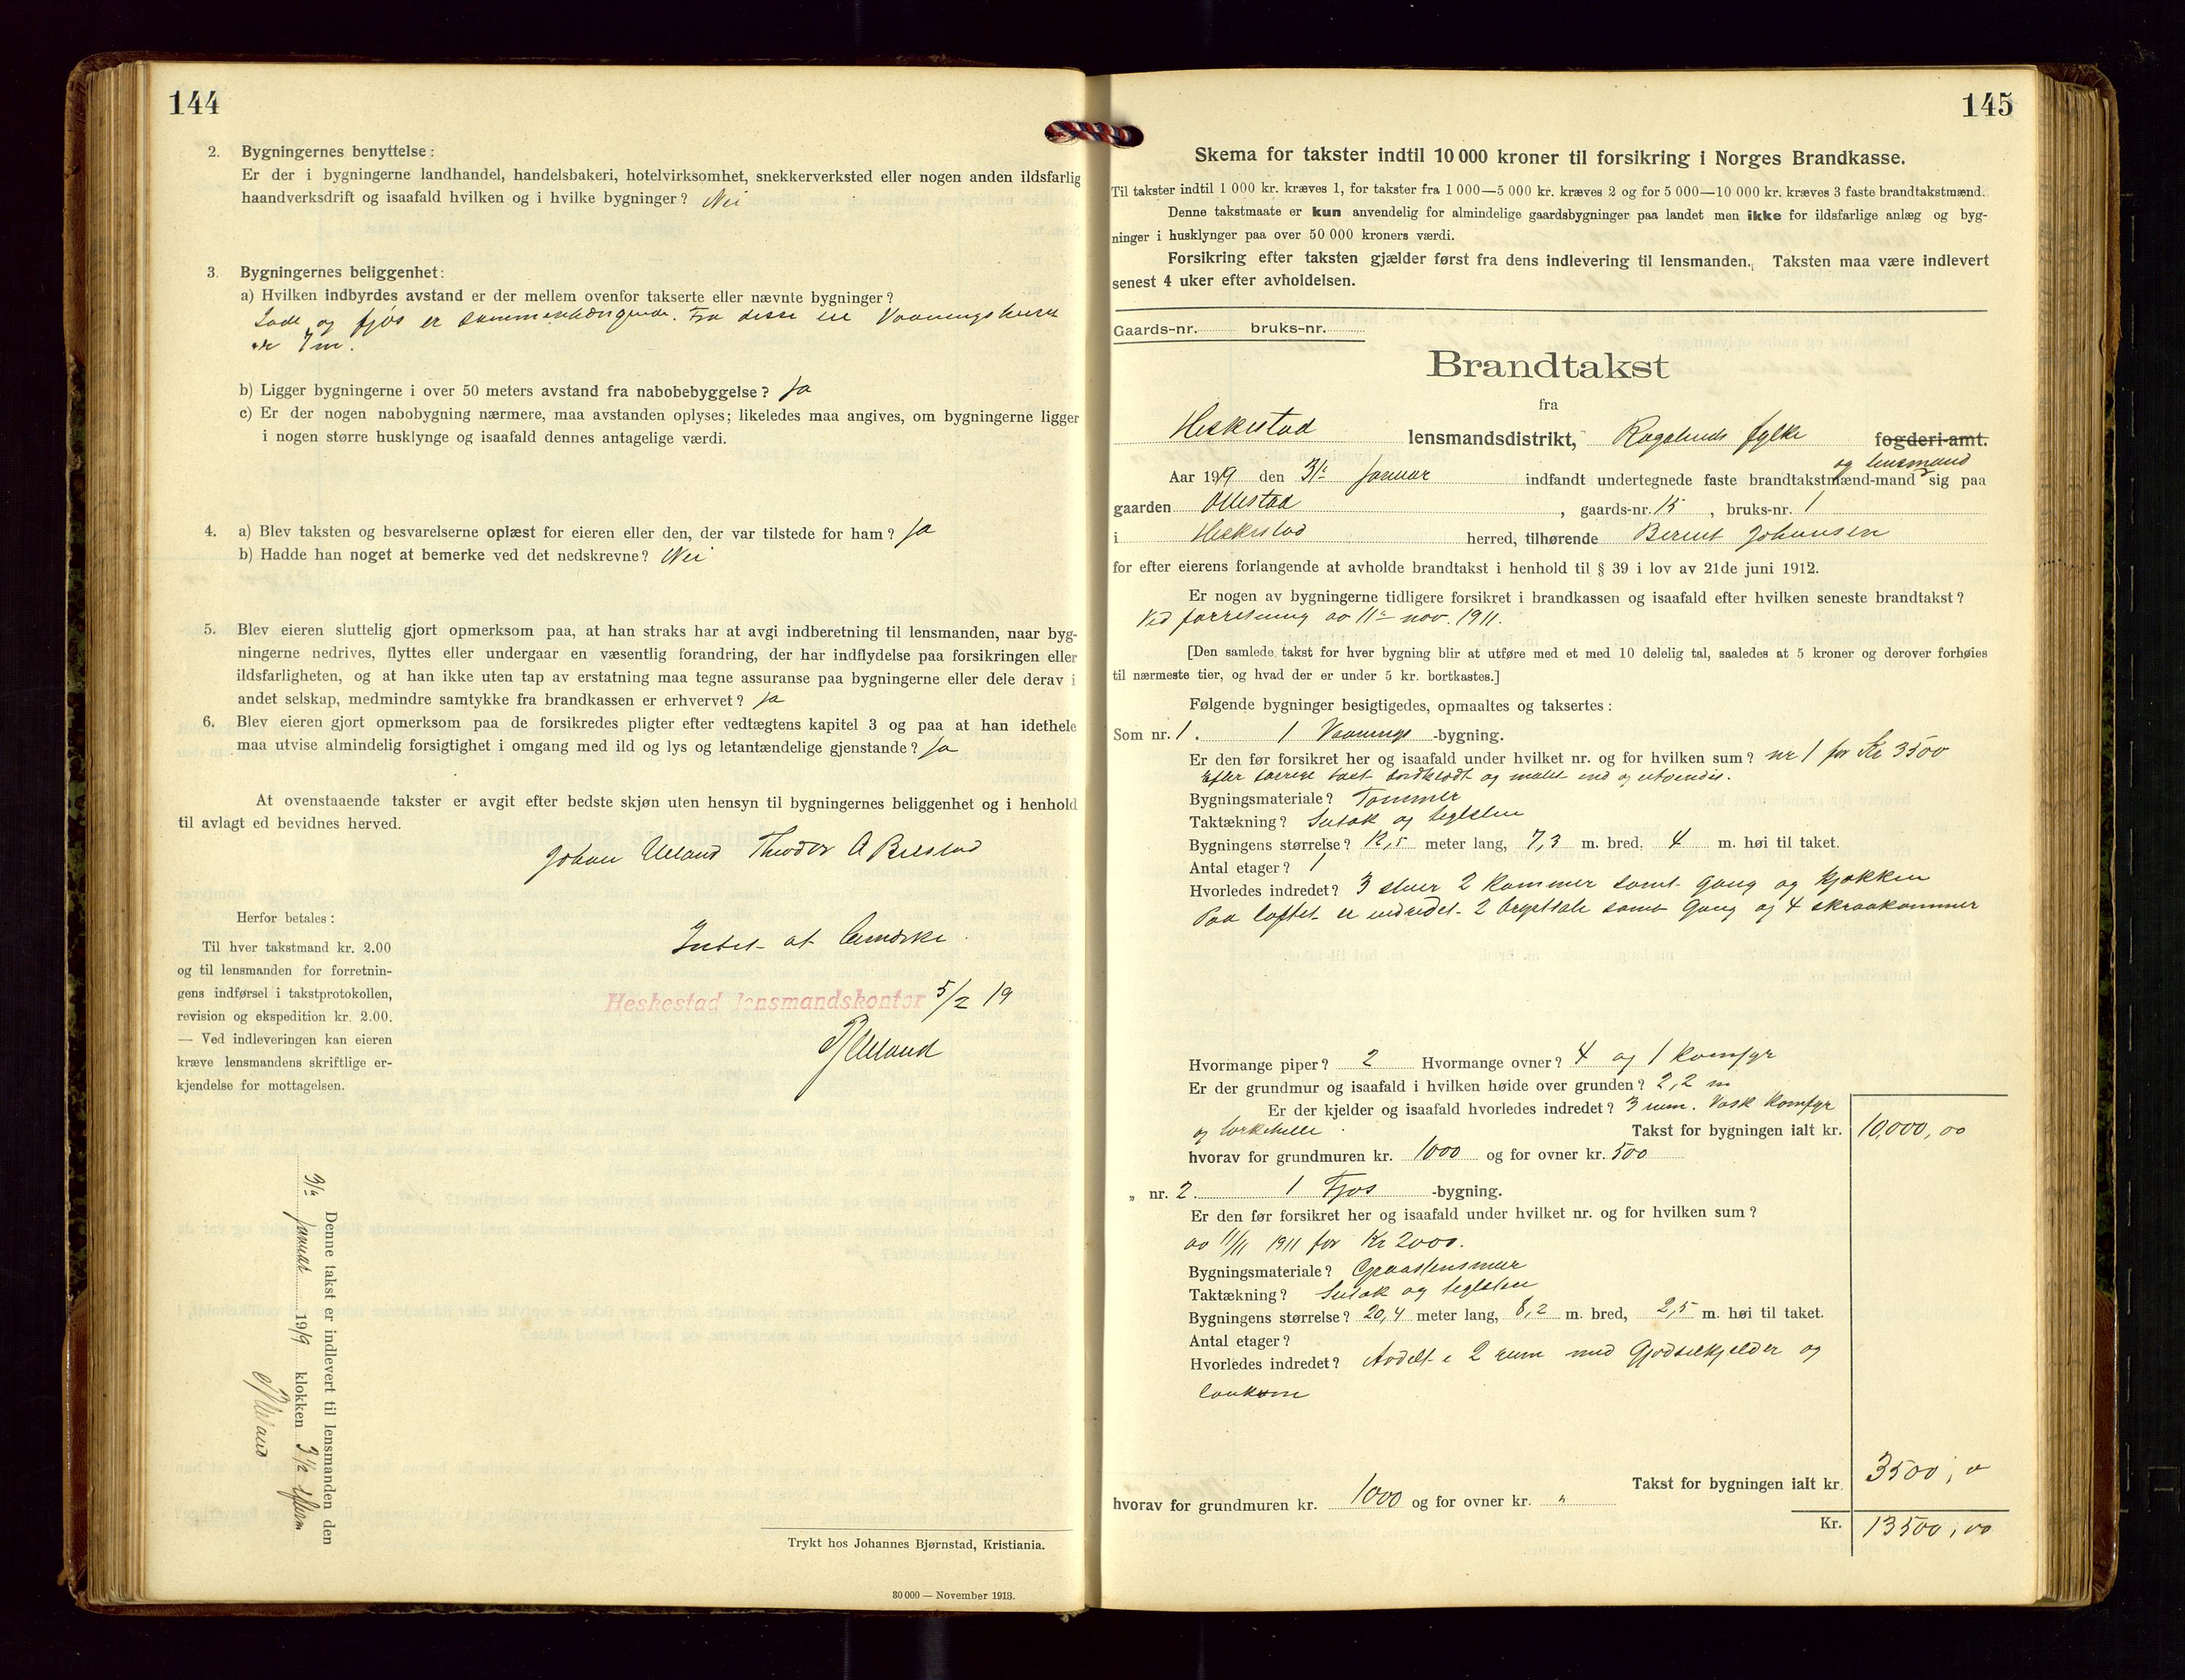 144
2. Bygningernes benyttelse:
Er der i bygningerne landhandel, handelsbakeri, hotelvirksomhet, snekkerverksted eller nogen anden ildsfarlig
haandverksdrift og isaafald hvilken og i hvilke bygninger? Nei
3. Bygningernes beliggenhet:
a) Hvilken indbyrdes avstand er der mellem ovenfor takserte eller nævnte bygninger?
Lade og fjøs er sammenhængende. Fra disse til Vaaningshuset
er 7 m.
b) Ligger bygningerne i over 50 meters avstand fra nabobebyggelse? Ja
c) Er der nogen nabobygning nærmere, maa avstanden oplyses; likeledes maa angives, om bygningerne ligger
i nogen større husklynge og isaafald dennes antagelige værdi.
4. a) Blev taksten og besvarelserne oplæst for eieren eller den, der var tilstede for ham? Ja
b) Hadde han noget at bemerke ved det nedskrevne? Nei
5. Blev eieren sluttelig gjort opmerksom paa, at han straks har at avgi indberetning til lensmanden, naar byg-
ningerne nedrives, flyttes eller undergaar en væsentlig forandring, der har indflydelse paa forsikringen eller
ildsfarligheten, og at han ikke uten tap av erstatning maa tegne assuranse paa bygningerne eller dele derav i
andet selskap, medmindre samtykke fra brandkassen er erhvervet? Ja
6. Blev eieren gjort opmerksom paa de forsikredes pligter efter vedtægtens kapitel 3 og paa at han idethele
maa utvise almindelig forsigtighet i omgang med ild og lys og letantændelige gjenstande? Ja
At ovenstaaende takster er avgit efter bedste skjøn uten hensyn til bygningernes beliggenhet og i henhold
til avlagt ed bevidnes herved.
Johan Ueland Theodor A
Herfor betales:
Til hver takstmand kr. 2.00
og til lensmanden for forretnin-
gens indførsel i takstprotokollen,
revision og ekspedition kr. 2.00.
— Ved indleveringen kan eieren
kræve lensmandens skriftlige er-
kjendelse for mottagelsen.
Intet at bemerke.
Heskestad lensmandskontor 5/2 19
Ueland
Denne takst er indlevert til lensmanden den
31te januar 1919 klokken 3 1/2 efterm
Ueland
Trykt hos Johannes Bjørnstad, Kristiania.
30 000 — November 1913.
145
Skema for takster indtil 10 000 kroner til forsikring i Norges Brandkasse.
Til takster indtil 1 000 kr. kræves 1, for takster fra 1 000—5 000 kr. kræves 2 og for 5 000—10 000 kr. kræves 3 faste brandtakstmænd.
Denne takstmaate er kun anvendelig for almindelige gaardsbygninger paa landet men ikke for ildsfarlige anlæg og byg-
ninger i husklynger paa over 50 000 kroners værdi.
Forsikring efter taksten gjælder først fra dens indlevering til lensmanden. Taksten maa være indlevert
senest 4 uker efter avholdelsen.
Gaards-nr. bruks-nr.
Brandtakst
fra
Heskestad lensmandsdistrikt, Rogalands fylke fogderi-amt.
og lensmand
Aar 1919 den 31te Januar indfandt undertegnede faste brandtakstmænd-mand sig paa
gaarden Ollestad, gaards-nr. 15, bruks-nr. 1
i Heskestad herred, tilhørende Berent Johansen
for efter eierens forlangende at avholde brandtakst i henhold til § 39 i lov av 21de juni 1912.
Er nogen av bygningerne tidligere forsikret i brandkassen og isaafald efter hvilken seneste brandtakst?
Ved forretning av 11te nov. 1911.
[Den samlede takst for hver bygning blir at utføre med et med 10 delelig tal, saaledes at 5 kroner og derover forhøies
til nærmeste tier, og hvad der er under 5 kr. bortkastes.]
Følgende bygninger besigtigedes, opmaaltes og taksertes:
Som nr. 1. 1 Vaanings-bygning.
Er den før forsikret her og isaafald under hvilket nr. og for hvilken sum? nr 1 for Kr 3500
Efter forrige takst bordklædt og malet ind og utvendig.
Bygningsmateriale? Tømmer
Taktækning? Sutak og teglsten
Bygningens størrelse? 12,5 meter lang, 7,3 m. bred, 4 m. høi til taket.
Antal etager? 1
Hvorledes indredet? 3 stuer 2 kammer samt gang og kjøkken
Paa loftet er indredet 2 samt gang og 4 skraakammer
Hvormange piper? 2 Hvormange ovner? 4 og 1 komfyr
Er der grundmur og isaafald i hvilken høide over grunden? 2,2 m
Er der kjelder og isaafald hvorledes indredet? 3 rum. Vask komfyr
og Takst for bygningen ialt kr. 10,000,00
hvorav for grundmuren kr. 1000 og for ovner kr. 500
„ nr. 2. 1 Fjøs -bygning.
Er den før forsikret her og isaafald under hvilket nr. og for hvilken sum?
av 11/11 1911 for Kr 2000.
Bygningsmateriale? Graastensmur
Taktækning? Sutak og teglsten
Bygningens størrelse? 20,4 meter lang, 8,2 m. bred, 2,5 m. høi til taket.
Antal etager?
Hvorledes indredet? Avdelt i 2 rum med Gjødselkjelder og
Takst for bygningen ialt kr. 3500,0
hvorav for grundmuren kr. 1000 og for ovner kr. "
Kr. 13500,00